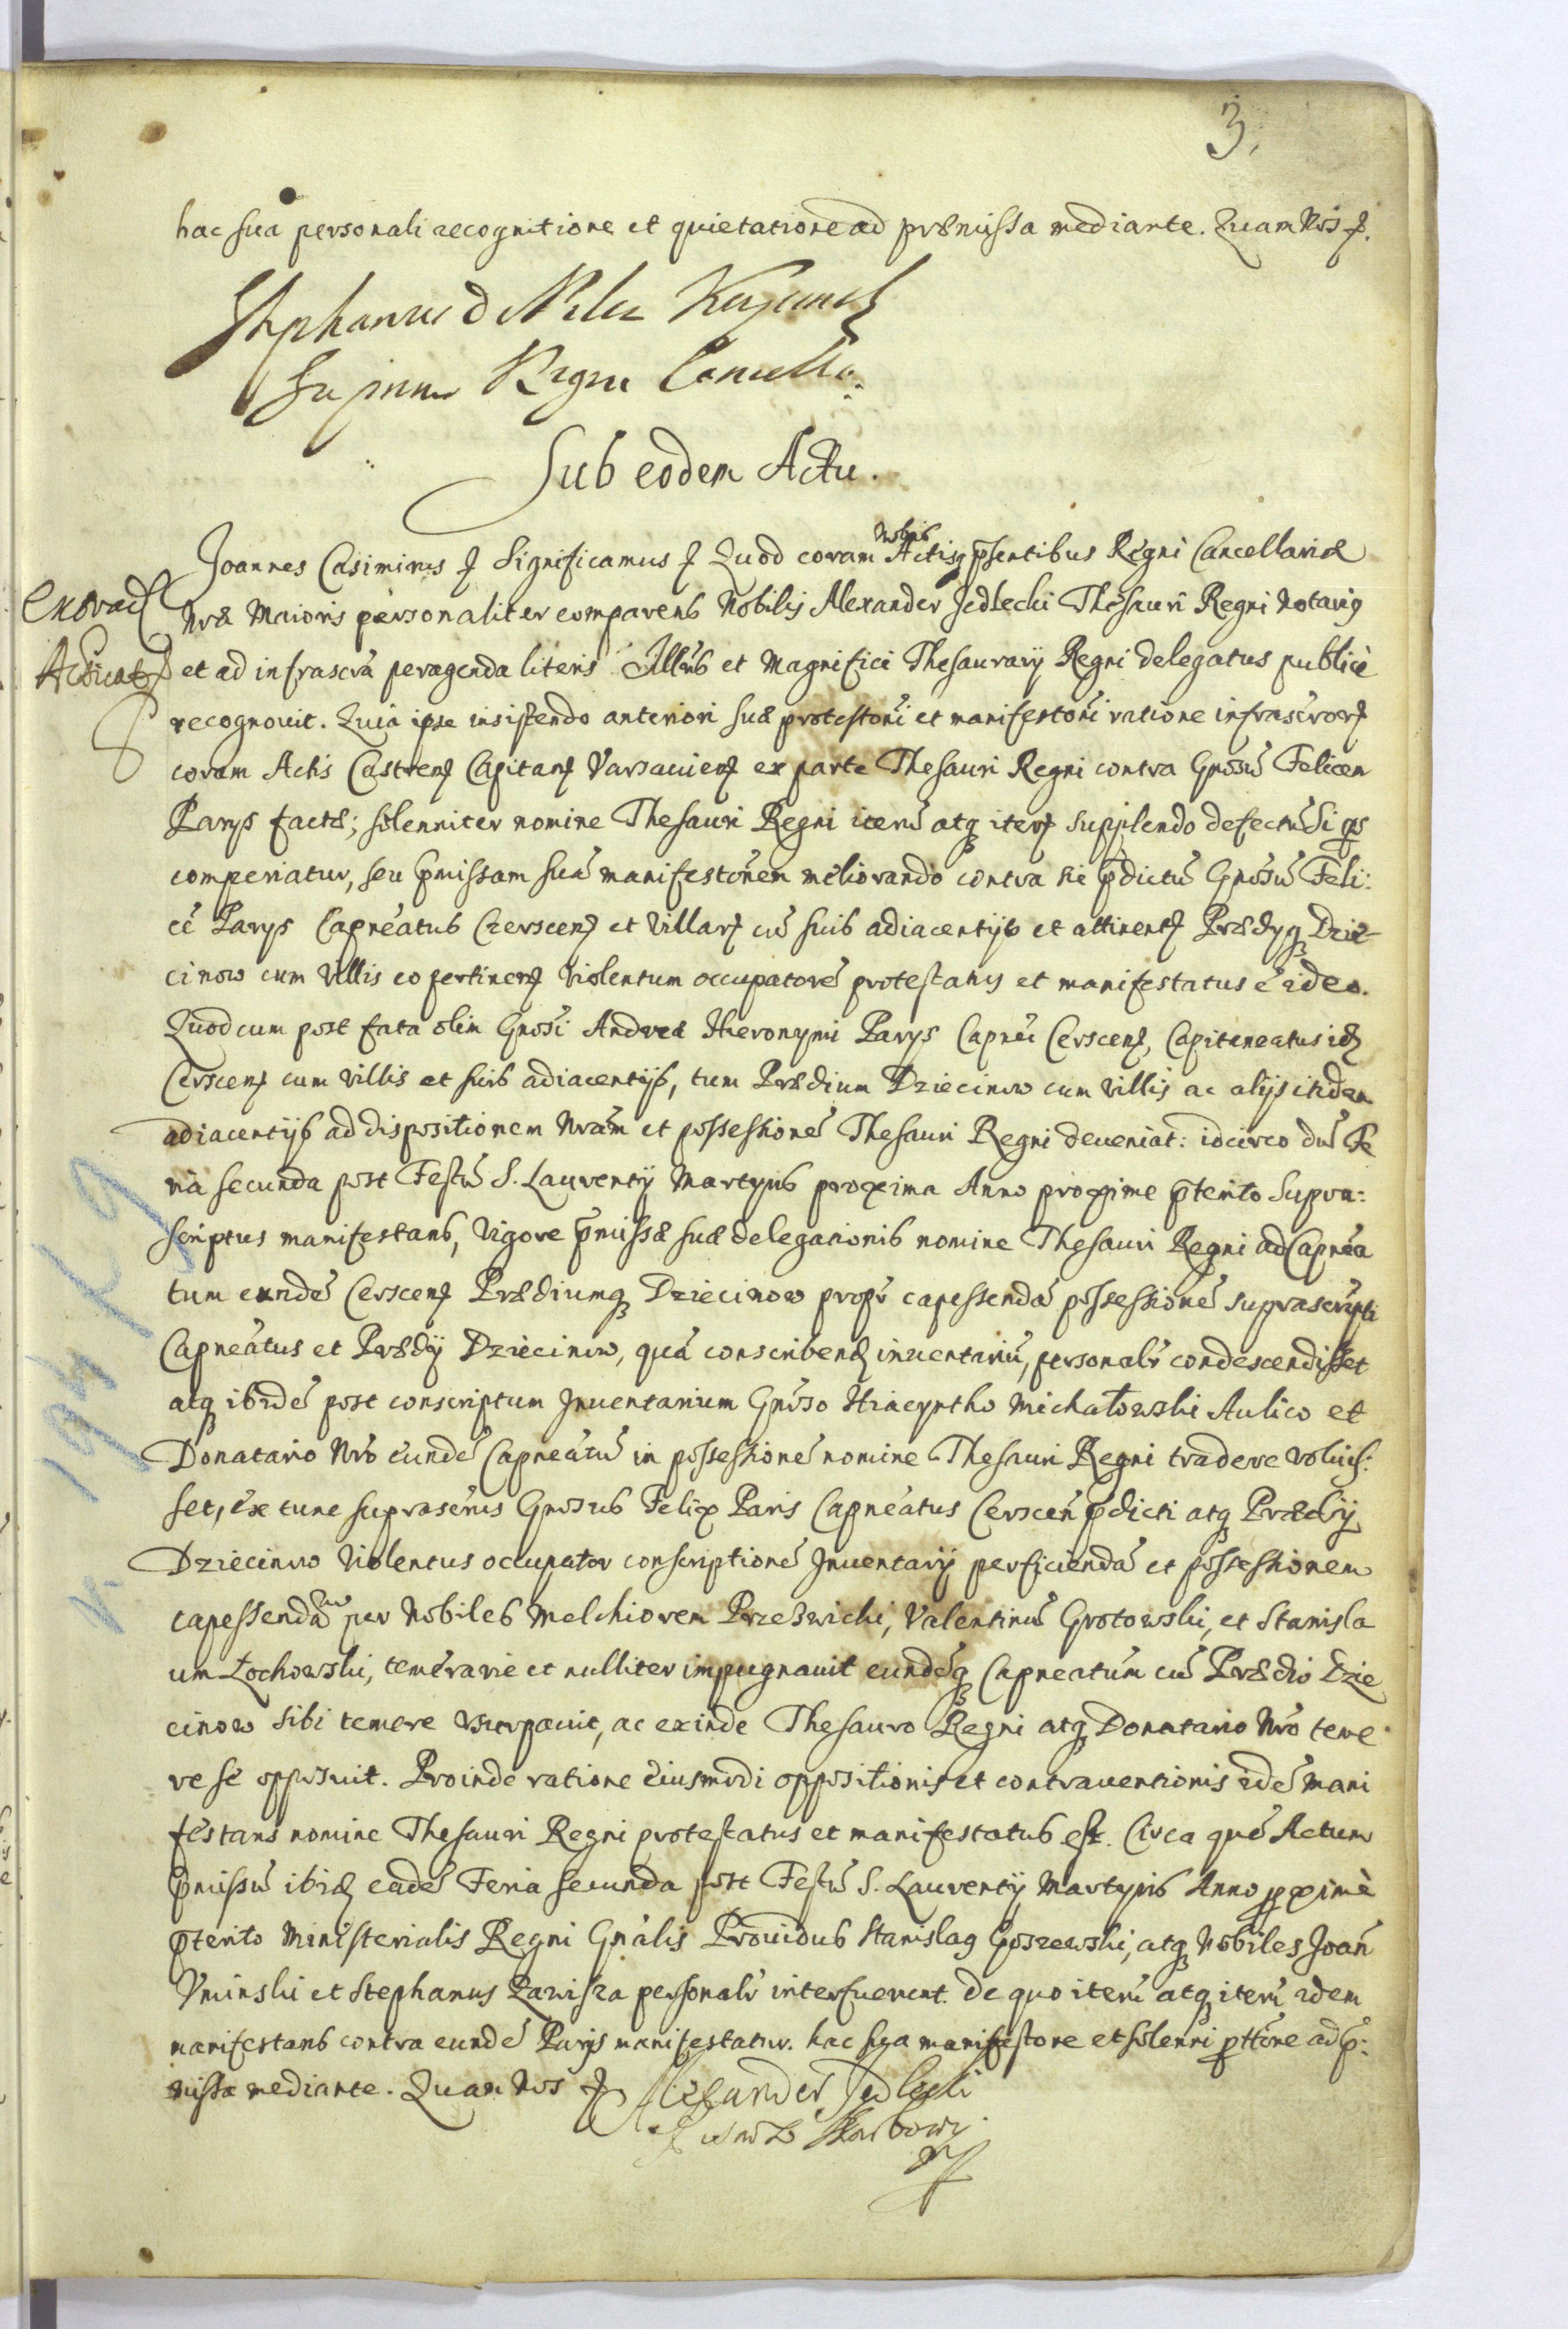 3.
hac sua personali recognitione et quietatione ad præmissa mediante. Quam Nos
Stephanus
Regni
Sub eodem Actu.
Joannes Casimirus Significamus Quod coram Nobis Actisq pñtibus Regni Cancellariæ
Nræ Maioris personaliter comparens Nobilis Alexander Jedlecki Thesauri Regni Notarig
et ad infrascra peragenda literis Illris et Magnifici Thesaurarij Regni delegatus publicè
recognouit. Quia ipse insistendo anteriori suæ protestoni et manifestoni ratione infrascror
coram Actis Castren Capitan Varsauien ex parte Thesauri Regni contra Gnosu Felicem
Parys factæ; solenniter nomine Thesauri Regni iteru atq iteru supplendo defectu Si qs
comperiatur, seu pmissam sua manifestonem meliorando contra hic pdictu Gnosu Feli:
ce Parys Capneatus Czerscen et Villar cu suis adiacentijs et attinent Prædyq Dzie-
cinow cum Villis eo pertinen Violentum occupatore protestatus et manifestatus e ideo.
Quod cum post fata olim Gnosi Andreæ Hieronymi Parys Capnei Cerscen, Capitaneatus id
Cerscen cum Villis et suis adiacentijs, tum Prædium Dziecinow cum Villis ac alijs itidem
adiacentijs ad dispositionem Nram et possessione Thesauri Regni deueniat: idcirco du Fe
ria secunda post Festu S. Laurentij Martyris proxima Anno proxime pterito Supra:
scriptus manifestans, Vigore pmissæ suæ delegationis nomine Thesauri Regni ad Capnea
tum eunde Cerscen Prædiumq Dziecinow propr capessenda possessione suprascripti
Capneatus et Prædij Dziecinow, qua conscribend inuentariu, personalr condescendisset
atq ibide post conscriptum Inuentarium Gnoso Hiacyntho Michałowski Aulico et
Donatario Nro eunde Capneatu in possessione nomine Thesauri Regni tradere voluis:
set, ex tunc suprascrius Gnosus Felix Paris Capneatus Cerscen pdicti atq Prædij
Dziecinow Violentus occupator conscriptione Inuentarij perficienda et possessionem
capessendam per Nobiles Melchiorem Przeßwicki, Valentinu Grotowski, et Stanisla
um Łochowski, temerarie et nulliter impugnauit eundeq Capneatum cu Prædio Dzie
cinow sibi temere Vsurpauit, ac exinde Thesauro Regni atq Donatario Nro teme
re se opposuit. Proinde ratione eiusmodi oppositionis et contrauentionis ide mani
festans nomine Thesauri Regni protestatus et manifestatus est. Circa que Actum
pmissu ibid eade Feria secunda post Festu S. Laurentij Martyris Anno pximè
pterito Ministerialis Regni Gnalis Prouidus Stanislag Goszewski, atq Nobiles Joan
Vminski et Stephanus Zawisza personalr interfuerunt. de quo iteru atq iteru idem
manifestans contra eunde Parys manifestatur. hac sua manifestone et solenni pttone ad p:
missa mediante. Quam Nos
Alexander Jedlecki
Pisarz Skarbowy
Extrad